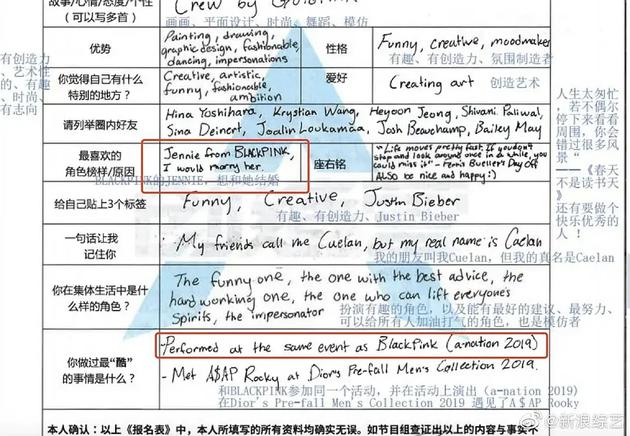 故事/心情/态度/个性
(可以写多首)
Crew by Goldlink
画画、平面设计、时尚、舞蹈、模仿
优势
Painting, drawing,
graphic design, fashionable,
dancing, impersonations
性格
Funny, creative, moodmaker
有趣、有创造力、氛围制造者
有创造力
、艺术性
的、有趣
、时尚、
有志向
你觉得自己有什么
特别的地方?
Creative, artistic,
funny, fashionable,
ambition
爱好
Creating art
创造艺术
请列举圈内好友
Hina Yoshihara, Krystian Wang, Heyoon Jeong, Shivani Paliwal,
Sina Deinert, Joalin Loukamaa, Josh Beauchamp, Bailey May
最喜欢的
角色榜样/原因
Jennie from BLACKPINK,
I would marry her.
BLACKPINK的JENNIE,想和她结婚
座右铭
"Life moves pretty fast. If you don't
stop and look around once in a while, you
could miss it" - Ferris Bueller's Day Off
ALSO be nice and happy :)
人生太匆忙
,若不偶尔
停下来看看
周围,你会
错过很多风
景“
——《春天
不是读书天
》
还有要做个
快乐优秀的
人!
给自己贴上3个标签
Funny, Creative, Justin Bieber
有趣、有创造力、Justin Bieber
一句话让我
记住你
My friends call me Cuelan, but my real name is Caelan
我的朋友叫我Cuelan,但我的真名是Caelan
你在集体生活中是什
么样的角色?
The funny one, the one with the best advice, the
hard working one, the one who can lift everyone's
spirits, the impersonator
扮演有趣的角色,以及能有最好的建议、最努力、
可以给所有人加油打气的角色,也是模仿者
你做过最“酷”
的事情是什么?
-Performed at the same event as BlackPink (a-nation 2019)
- Met A$AP Rocky at Dior's Pre-fall Men's Collection 2019.
和BLACKPINK参加同一个活动,并在活动上演出(a-nation 2019)
在Dior's Pre-fall Men's Collection 2019 遇见了A＄AP Rooky
本人确认:以上《报名表》中,本人所填写的所有资料均确实无误。如节目组查证出以上的内容与事实不
@新浪综艺